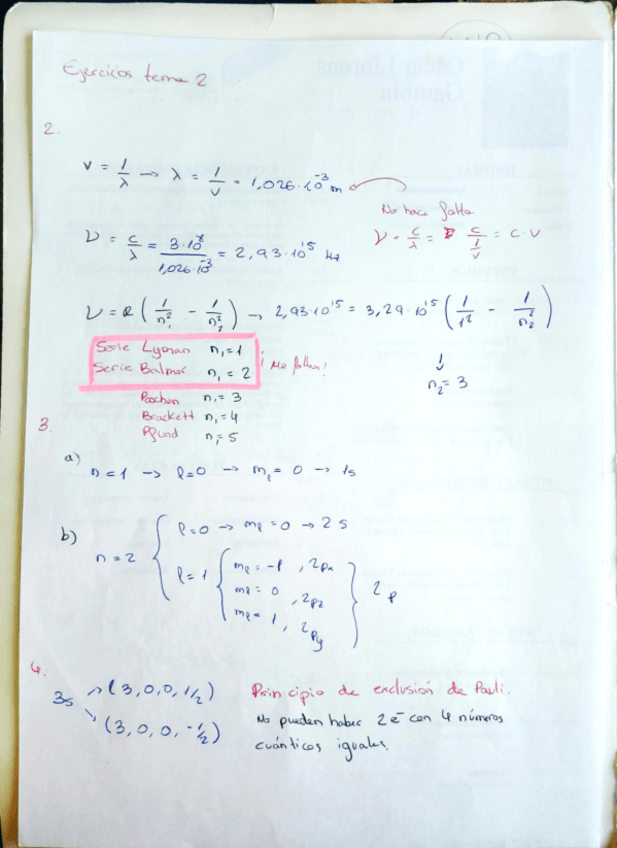 Ejercicios tema 2
2.
ν = 1/λ → λ = 1/ν = 1,026·10^-3 m
No hace falta
ν = c/λ = c/(1/ν) = c·ν
ν = c/λ = 3·10^8/1,026·10^-3 = 2,93·10^15 Hz
ν = R (1/n₁² - 1/n₂²) → 2,93·10^15 = 3,29·10^15 (1/1² - 1/n₂²)
↓
n₂ = 3
Serie Lyman n₁ = 1
Serie Balmer n₁ = 2
¡Me faltan!
Paschen n₁ = 3
Brackett n₁ = 4
Pfund n₁ = 5
3.
a) n = 1 → l = 0 → mₗ = 0 → 1s
b) n = 2
l = 0 → mₗ = 0 → 2s
l = 1
mₗ = -1, 2px
mₗ = 0, 2pz
mₗ = 1, 2py
2p
4.
3s
(3, 0, 0, 1/2)
(3, 0, 0, -1/2)
Principio de exclusión de Pauli.
No pueden haber 2 e⁻ con 4 números
cuánticos iguales.